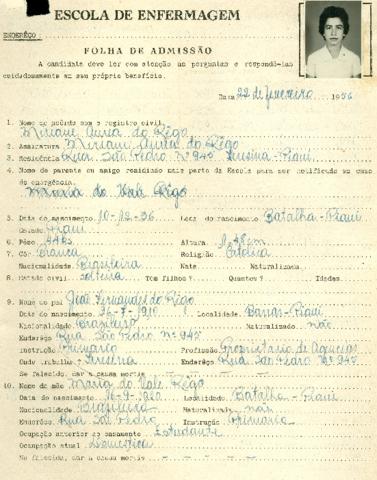 ESCOLA DE ENFERMAGEM
ENDERÊÇO
FOLHA DE ADMISSÃO
A candidata deve ler com atenção as perguntas e respondê-las
cuidadosamente em seu próprio benefício.
Data 22 de fevereiro 1956
1. Nome de acôrdo com o registro civil
do Rêgo
2. Assinatura do Rêgo
3. Residência Rua São Pedro Nº 945 Piauí
4. Nome de parente ou amigo residindo mais perto da Escola para ser notificado em caso
de emergência.
Maria do Vale Rêgo
5. Data do nascimento 10-12-36 Loc. do nascimento Batalha-Piauí
Estado Piauí
6. Pêso 44ks Altura 1,48cm
7. Côr Branca Religião Católica
Nacionalidade Brasileira Nata Naturalizada
8. Estado civil solteira Tem filhos? Quantos? Idades
9. Nome do pai José Fernandes do Rêgo
Data do nascimento 26-7-1910 Localidade Barras-Piauí
Nacionalidade Brasileiro Naturalizado não
Endereço Rua São Pedro Nº 945
Instrução Primário Profissão Proprietário de
Onde trabalha? Teresina Endereço Rua São Pedro Nº 945
Se falecido, dar a causa mortis
10. Nome da mãe Maria do Vale Rêgo
Data do nascimento 16-9-1920 Localidade Batalha-Piauí
Nacionalidade Brasileira Naturalizada não
Endereço Rua São Pedro Instrução Primário
Ocupação anterior ao casamento Estudante
Ocupação atual Doméstica
Se falecida, dar a causa mortis